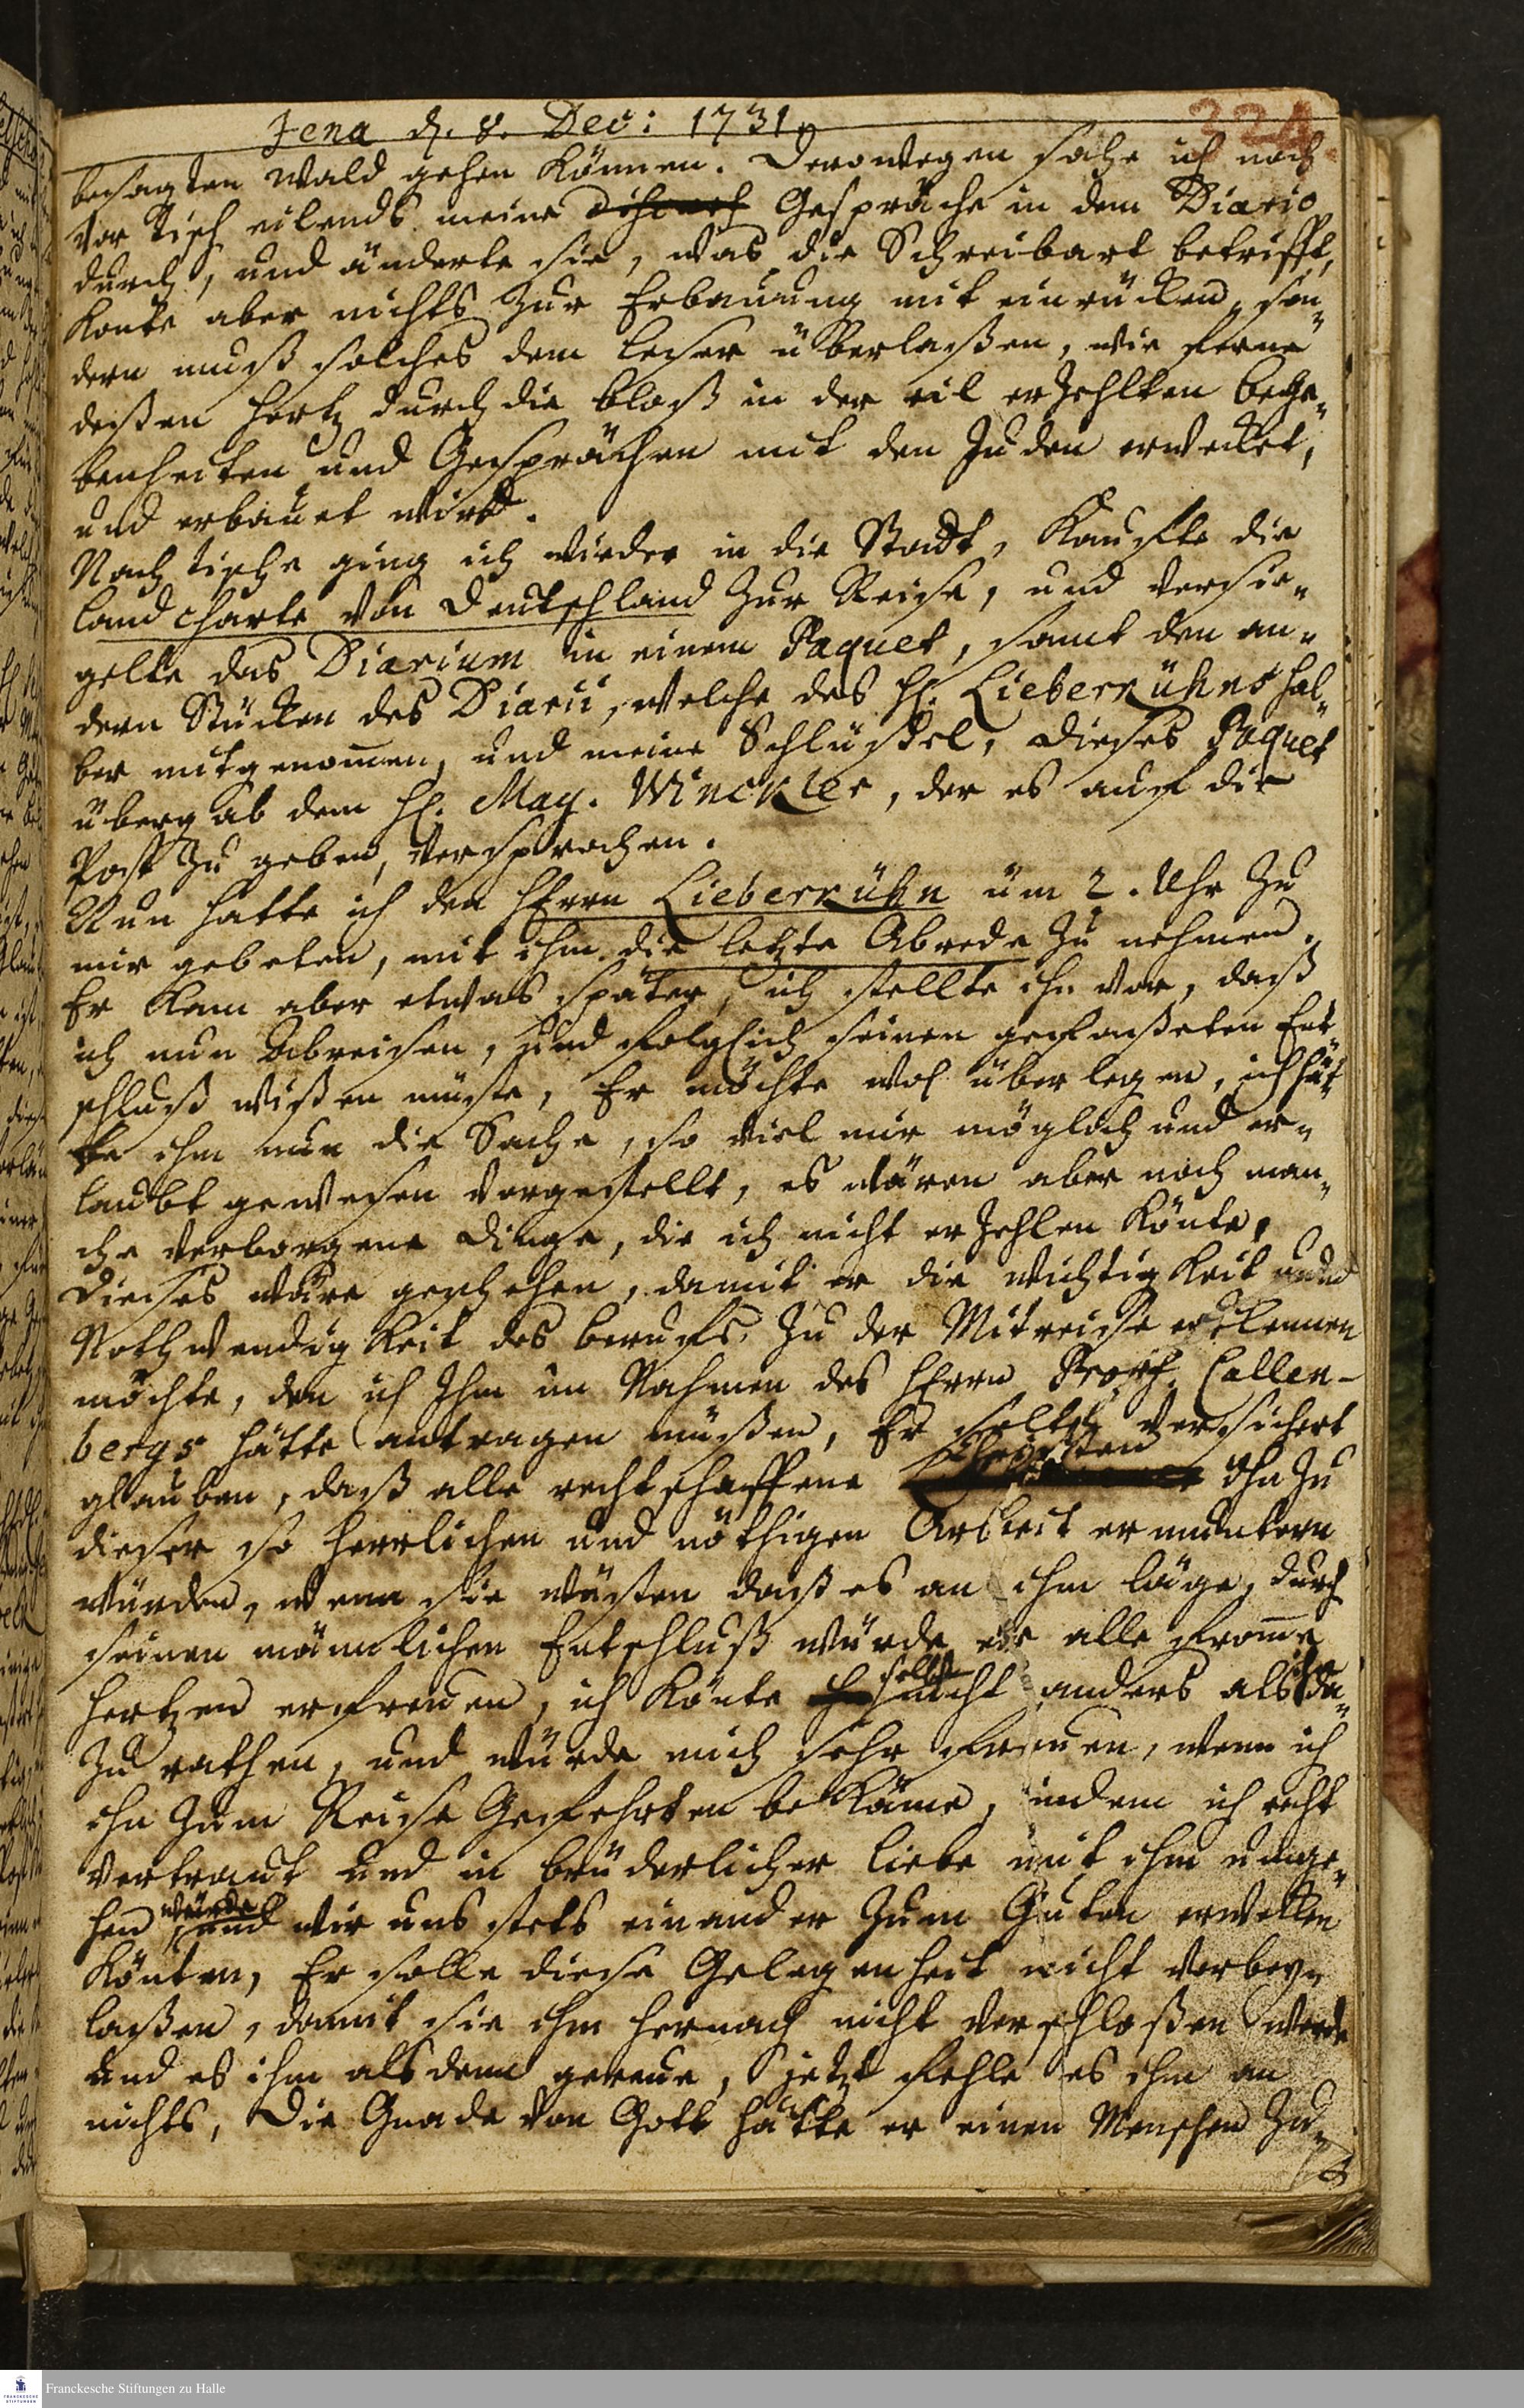 Jena d. 8. Dec: 1731.
224.
besagten Wald gehen können. Derowegen sahe ich noch
vor Tisch eilends meine Gespräche in dem Diario
durch, und änderte sie, was die Schreibart betrifft,
konte aber nichts zur Erbauung mit einrücken, son„
dern muß solches dem Leser überlaßen, wie ferne
deßen Hertz durch die bloß in der eil erzehlten bege„
benheiten und Gesprächen mit den Juden erwecket,
und erbauet wird.
Nach Tische ging ich wieder in die Stadt, Kauffte die
Landcharte von Deutschland zur Reise, und versie„
gelte das Diarium in einem Paquet, samt den an„
dern Stücken des Diarii, welche des H. Lieberkühns hal„
ber mitgenom̅en, und meine Schlüßel, dieses Paquet
übergab dem H. Mag. Winckler, der es auf die
Post zu geben, versprochen.
Nun hatte ich den Herrn Lieberkühn um 2. Uhr zu
mir gebeten, mit ihm die letzte Abrede zu nehmen.
Er kam aber etwas später, ich stellte ihn vor, daß
ich nun Abreisen, und folglich seinen gefaßeten Ent„
schluß wißen müste, Er möchte wol überlegen, ich hät„
te ihm nun die Sache, so viel mir möglich und er„
laubt gewesen vorgestellt, es wären aber noch man„
che verborgene Dinge, die ich nicht erzehlen könte,
Dieses wäre geschehen, damit er die Wichtigkeit und
Nothwendigkeit des berufs zu der Mitreise erkennen
möchte, den ich Ihm im Nahmen des Herrn Prof. Callen-
bergs hätte antragen müßen, Er solte versichert
glauben, daß alle rechtschaffene Christen Ihn zu
dieser so herrlichen und nöthigen Arbeit ermuntern
würden, wenn sie wüsten daß es an ihm läge, durch
seinen männlichen Entschluß würde er alle from̅e
Hertzen erfreuen, ich könte selbst nicht anders als ihn da„
zu rathen, und würde mich sehr freuen, wenn ich
ihn zum Reise Gefehrten bekäme, indem ich recht
vertraut und in brüderlicher Liebe mit ihm umge„
hen würde, und wir uns stets einander zum Guten erwecken
könten, Er solle diese Gelegenheit nicht vorbey„
laßen, damit sie ihm hernach nicht verschloßen werde
und es ihm alsdenn gereue, jetzt fehle es ihm an
nichts, Die Gnade von Gott hätte er einen Menschen zu„
Franckesche Stiftungen zu Halle